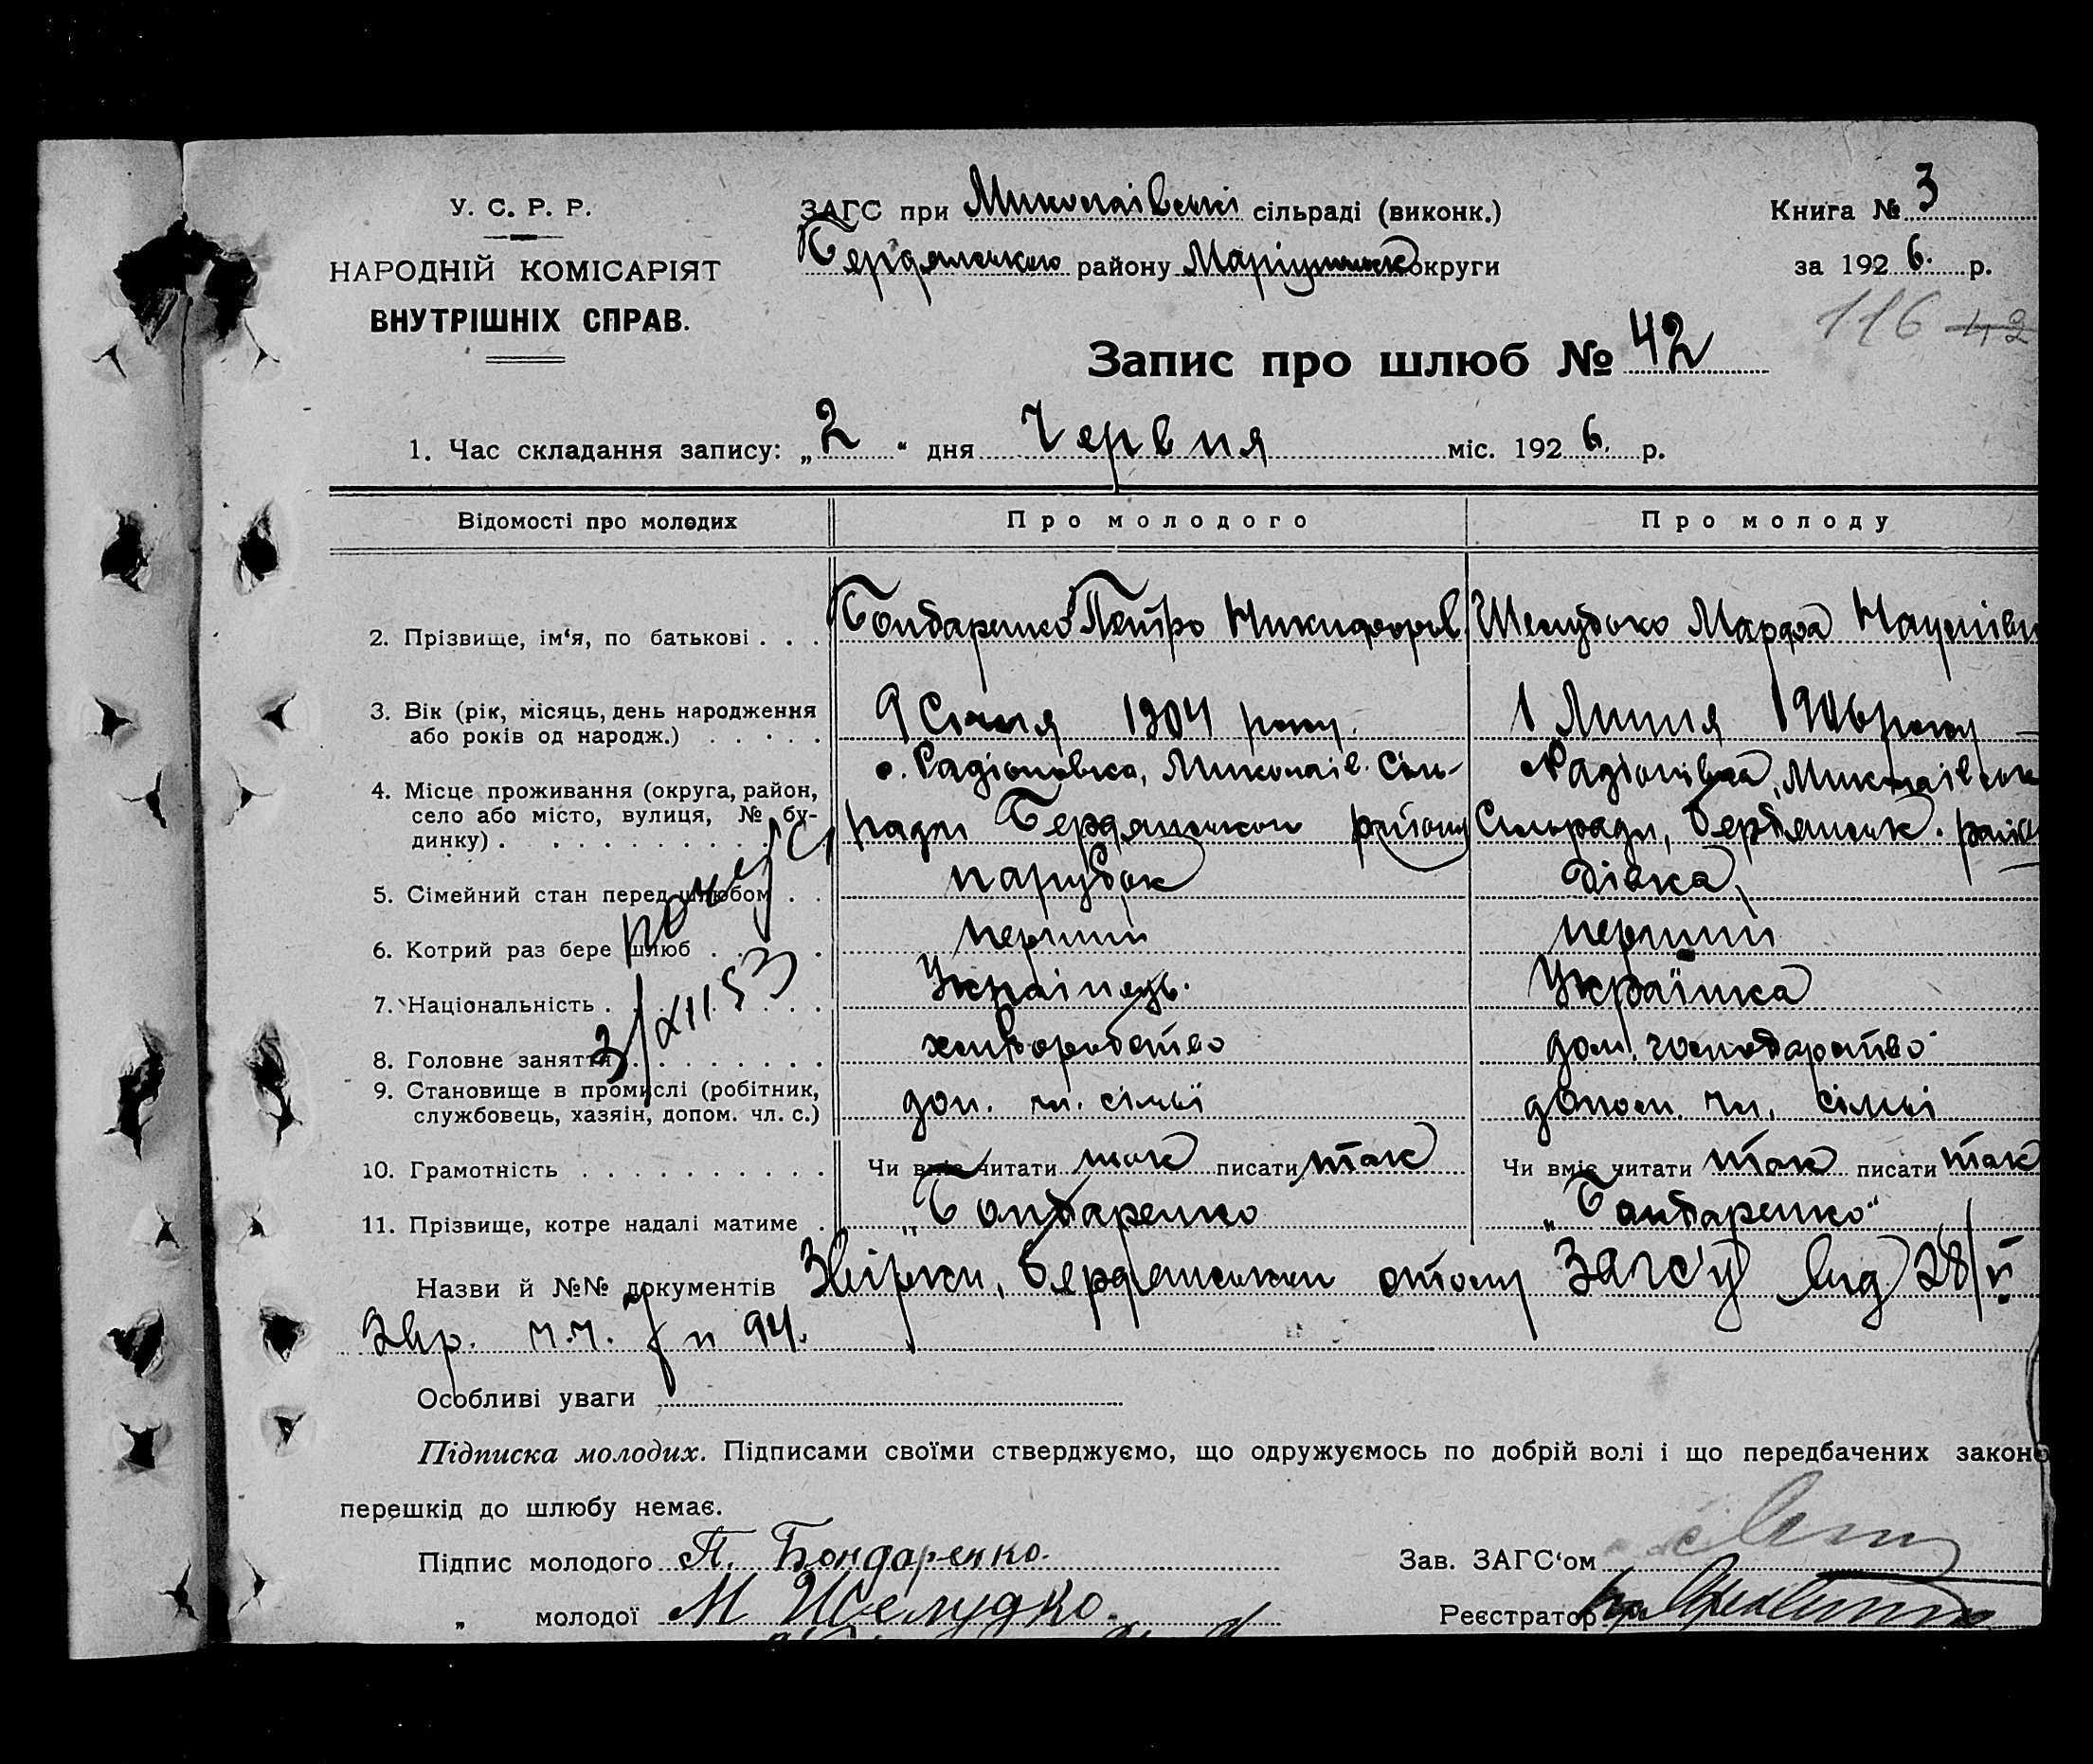 У. С. Р. Р.
НАРОДНІЙ КОМІСАРІЯТ
ВНУТРІШНІХ СПРАВ.
ЗАГС при Миколаівські сільраді (виконк.)
Бердянського району Маріупільск округи
Книга № 3
за 1926. р.
116 42
Запис про шлюб № 42
1. Час складання запису: „2“ дня Червня міс. 1926. р.
Відомості про молодих Про молодого Про молоду
2. Прізвище, ім‘я, по батькові . . . Бондаренко Петро Никифоров. Шелудько Марфа Наумівн
3. Вік (рік, місяць, день народження
або років од народж.) . . . . . 9 Січня 1904 року. 1 Липня 1906 року
4. Місце проживання (округа, район,
село або місто, вулиця, № бу-
динку) . . . . . . . . . .
с. Радіоновка, Миколаів. Сіль-
ради Бердянського району
Радіонівка, Миколаівськ
Сільради, Бердянськ. райо
5. Сімейний стан перед шлюбом . . парубок дівка
6. Котрий раз бере шлюб . . . перший перший
7. Національність . . . . . Украінець. Украінка
8. Головне заняття . . . . . . . хліборобство дом. господарство
9. Становище в промислі (робітник,
службовець, хазяін, допом. чл. с.) доп. чл. сімьі допом. чл. сімьі
3/XII 53
10. Грамотність . . . . . . . . . . Чи вміє читати так писати так Чи вміє читати так писати так
11. Прізвище, котре надалі матиме . „Бондаренко „Бондаренко“
Назви й №№ документів Бердянського столу ЗАГС'у від 28/V
ч.ч. 7 и 94.
Особливі уваги
Підписка молодих. Підписами своїми стверджуємо, що одружуємось по добрій волі і що передбачених законо
перешкід до шлюбу немає.
Підпис молодого П. Бондаренко.
Зав. ЗАГС‘ом
„ молодої М Шелудко.
Реєстратор